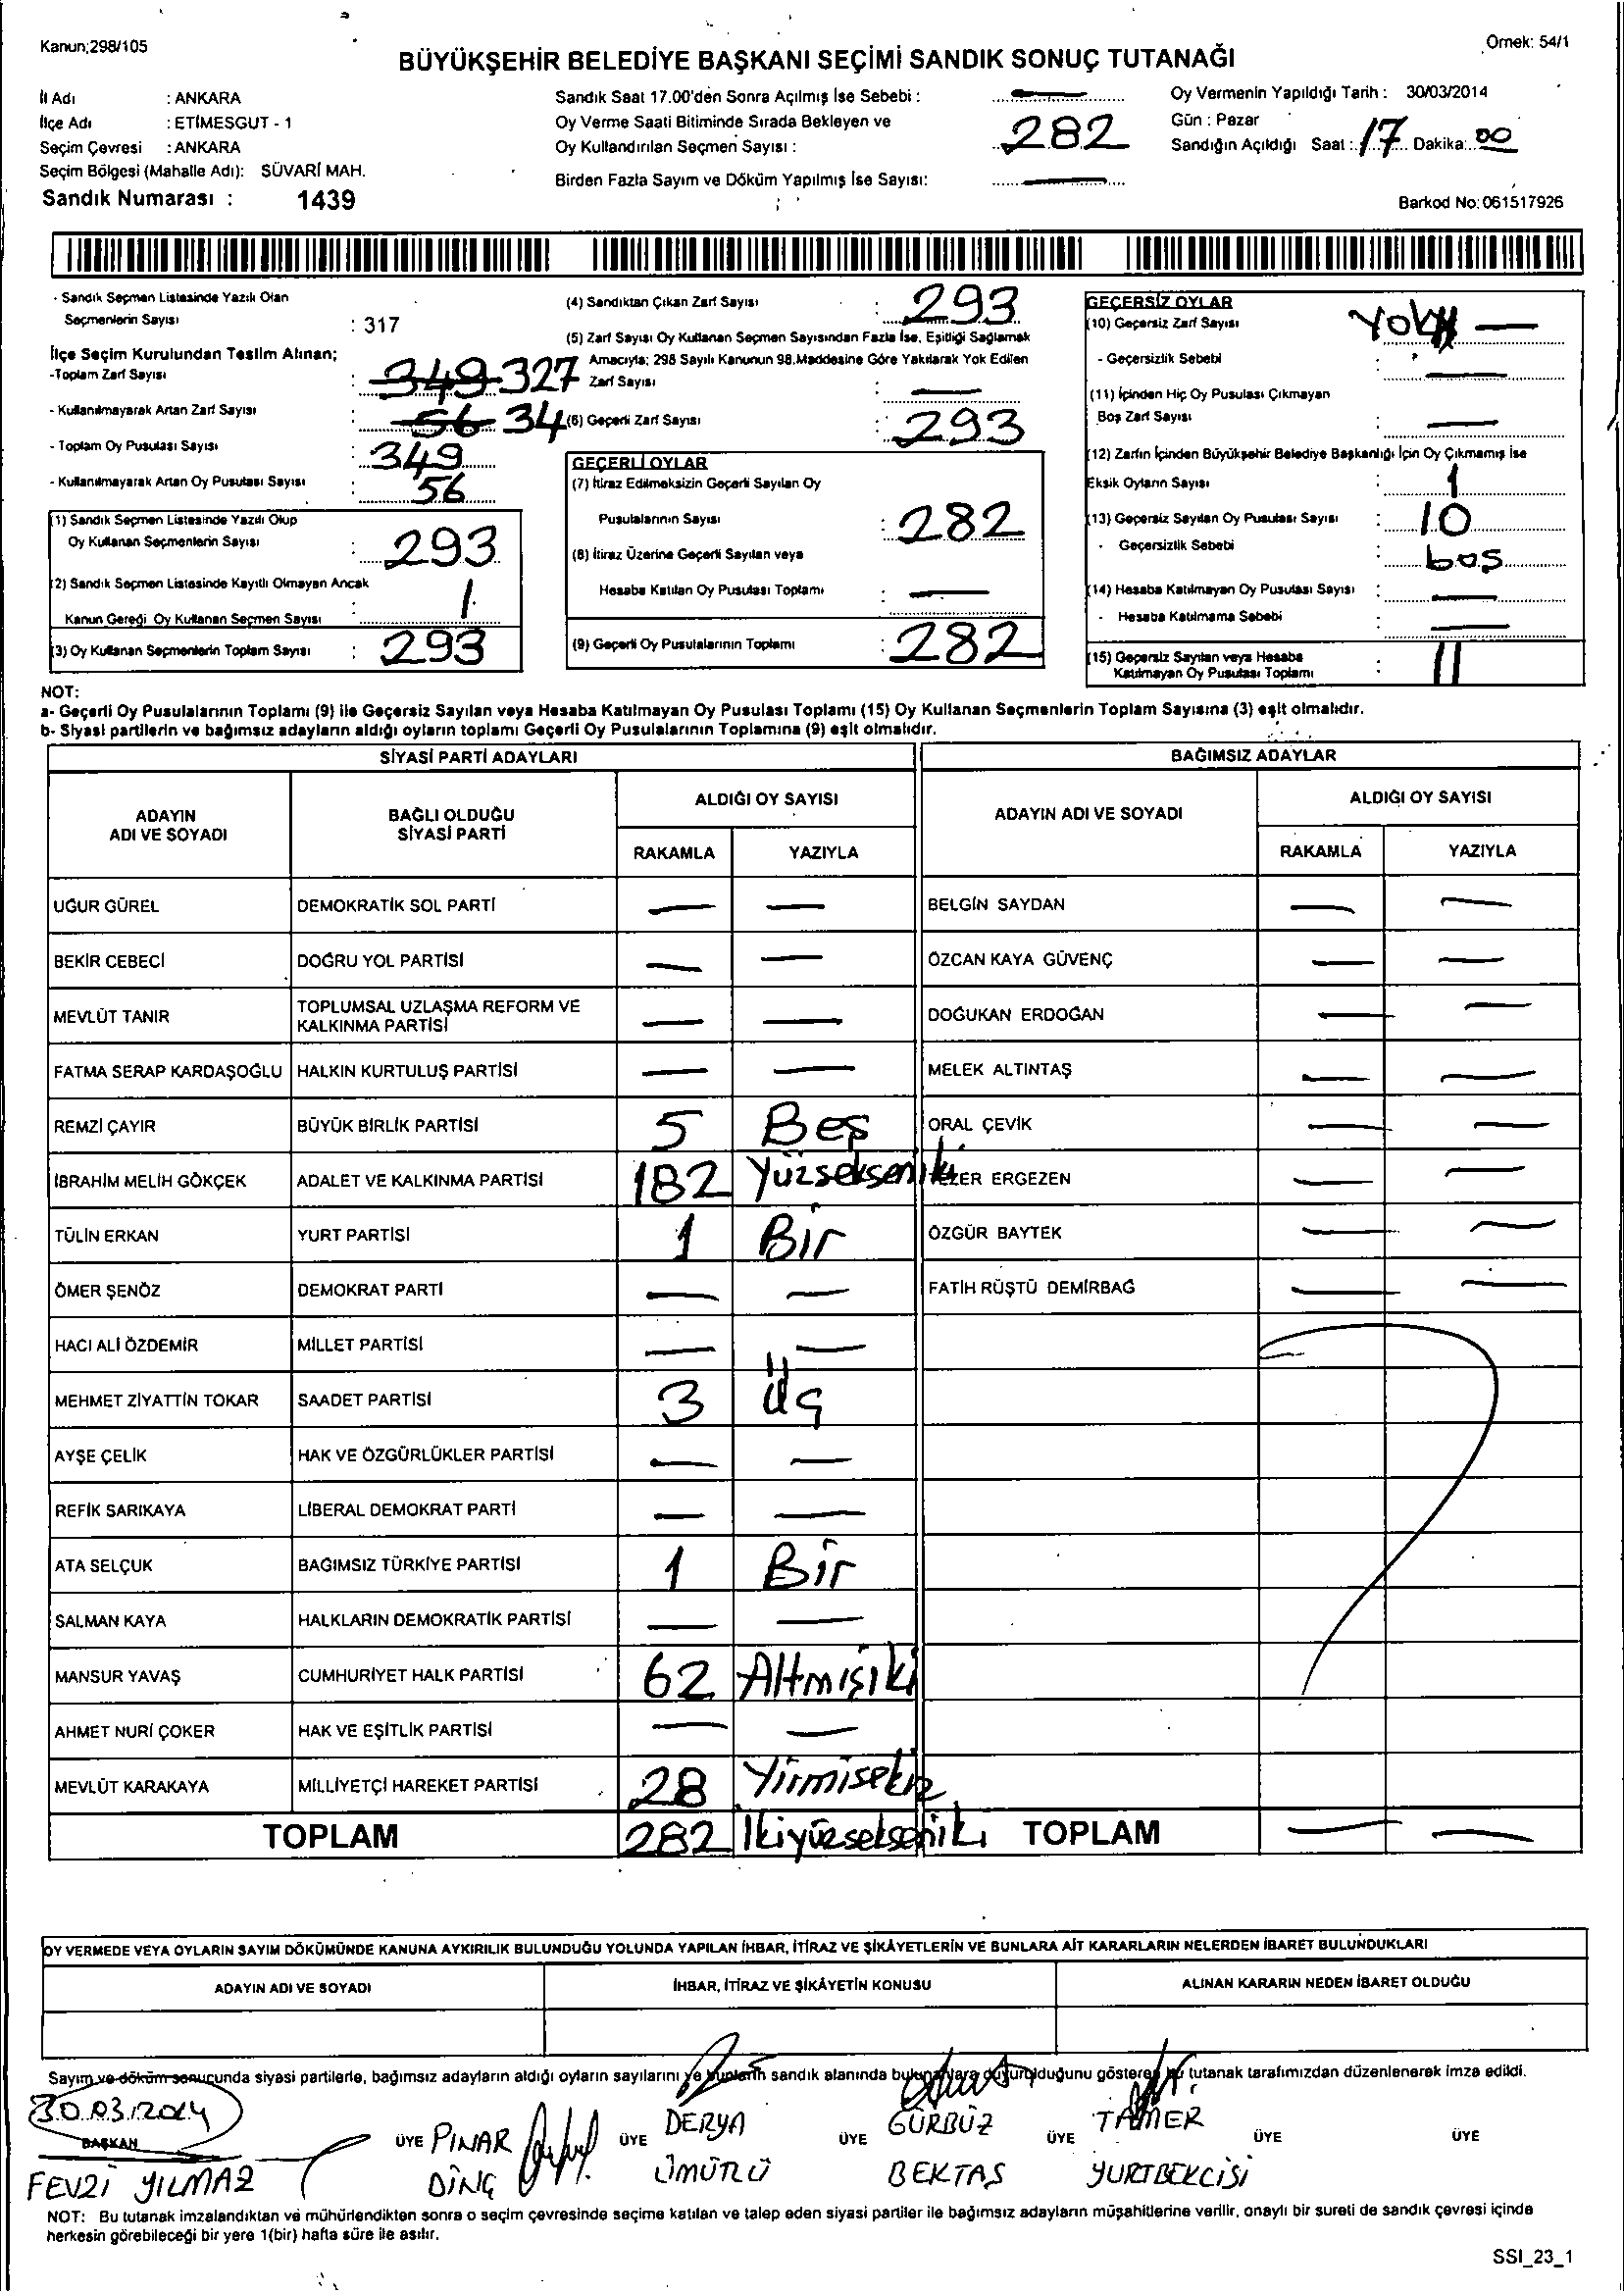 Kanun;298/105
Örnek: 54/1
BÜYÜKŞEHİR BELEDİYE BAŞKANI SEÇİMİ SANDIK SONUÇ TUTANAĞI
İl Adı : ANKARA
İlçe Adı : ETİMESGUT - 1
Seçim Çevresi : ANKARA
Seçim Bölgesi (Mahalle Adı): SÜVARİ MAH.
Sandık Numarası : 1439
Sandık Saat 17.00'den Sonra Açılmış İse Sebebi : —
Oy Verme Saati Bitiminde Sırada Bekleyen ve
Oy Kullandırılan Seçmen Sayısı : 282
Birden Fazla Sayım ve Döküm Yapılmış İse Sayısı: —
Oy Vermenin Yapıldığı Tarih : 30/03/2014
Gün : Pazar
Sandığın Açıldığı Saat : 17 Dakika: 00
Barkod No: 061517926
- Sandık Seçmen Listesinde Yazılı Olan
Seçmenlerin Sayısı : 317
İlçe Seçim Kurulundan Teslim Alınan;
-Toplam Zarf Sayısı : 349 327
- Kullanılmayarak Artan Zarf Sayısı : 56 34
- Toplam Oy Pusulası Sayısı : 349
- Kullanılmayarak Artan Oy Pusulası Sayısı : 56
(1) Sandık Seçmen Listesinde Yazılı Olup
Oy Kullanan Seçmenlerin Sayısı : 293
(2) Sandık Seçmen Listesinde Kayıtlı Olmayan Ancak
Kanun Gereği Oy Kullanan Seçmen Sayısı : 1
(3) Oy Kullanan Seçmenlerin Toplam Sayısı : 293
(4) Sandıktan Çıkan Zarf Sayısı : 293
(5) Zarf Sayısı Oy Kullanan Seçmen Sayısından Fazla İse, Eşitliği Sağlamak
Amacıyla; 298 Sayılı Kanunun 98.Maddesine Göre Yakılarak Yok Edilen
Zarf Sayısı : —
(6) Geçerli Zarf Sayısı : 293
GEÇERLİ OYLAR
(7) İtiraz Edilmeksizin Geçerli Sayılan Oy
Pusulalarının Sayısı : 282
(8) İtiraz Üzerine Geçerli Sayılan veya
Hesaba Katılan Oy Pusulası Toplamı : —
(9) Geçerli Oy Pusulalarının Toplamı : 282
GEÇERSİZ OYLAR
(10) Geçersiz Zarf Sayısı : Yok —
- Geçersizlik Sebebi : —
(11) İçinden Hiç Oy Pusulası Çıkmayan
Boş Zarf Sayısı : —
(12) Zarfın İçinden Büyükşehir Belediye Başkanlığı İçin Oy Çıkmamış İse
Eksik Oyların Sayısı : 1
(13) Geçersiz Sayılan Oy Pusulası Sayısı : 10
- Geçersizlik Sebebi : boş
(14) Hesaba Katılmayan Oy Pusulası Sayısı : —
- Hesaba Katılmama Sebebi : —
(15) Geçersiz Sayılan veya Hesaba
Katılmayan Oy Pusulası Toplamı : 11
NOT:
a- Geçerli Oy Pusulalarının Toplamı (9) ile Geçersiz Sayılan veya Hesaba Katılmayan Oy Pusulası Toplamı (15) Oy Kullanan Seçmenlerin Toplam Sayısına (3) eşit olmalıdır.
b- Siyasi partilerin ve bağımsız adayların aldığı oyların toplamı Geçerli Oy Pusulalarının Toplamına (9) eşit olmalıdır.
SİYASİ PARTİ ADAYLARI
ADAYIN ADI VE SOYADI BAĞLI OLDUĞU SİYASİ PARTİ ALDIĞI OY SAYISI RAKAMLA YAZIYLA
UĞUR GÜREL DEMOKRATİK SOL PARTİ — —
BEKİR CEBECİ DOĞRU YOL PARTİSİ — —
MEVLÜT TANIR TOPLUMSAL UZLAŞMA REFORM VE KALKINMA PARTİSİ — —
FATMA SERAP KARDAŞOĞLU HALKIN KURTULUŞ PARTİSİ — —
REMZİ ÇAYIR BÜYÜK BİRLİK PARTİSİ 5 Beş
İBRAHİM MELİH GÖKÇEK ADALET VE KALKINMA PARTİSİ 182 Yüzsekseniki
TÜLİN ERKAN YURT PARTİSİ 1 Bir
ÖMER ŞENÖZ DEMOKRAT PARTİ — —
HACI ALİ ÖZDEMİR MİLLET PARTİSİ — —
MEHMET ZİYATTİN TOKAR SAADET PARTİSİ 3 Üç
AYŞE ÇELİK HAK VE ÖZGÜRLÜKLER PARTİSİ — —
REFİK SARIKAYA LİBERAL DEMOKRAT PARTİ — —
ATA SELÇUK BAĞIMSIZ TÜRKİYE PARTİSİ 1 Bir
SALMAN KAYA HALKLARIN DEMOKRATİK PARTİSİ — —
MANSUR YAVAŞ CUMHURİYET HALK PARTİSİ 62 Altmışiki
AHMET NURİ ÇOKER HAK VE EŞİTLİK PARTİSİ — —
MEVLÜT KARAKAYA MİLLİYETÇİ HAREKET PARTİSİ 28 Yirmisekiz
TOPLAM 282 İkiyüzsekseniki
BAĞIMSIZ ADAYLAR
ADAYIN ADI VE SOYADI ALDIĞI OY SAYISI RAKAMLA YAZIYLA
BELGİN SAYDAN — —
ÖZCAN KAYA GÜVENÇ — —
DOĞUKAN ERDOĞAN — —
MELEK ALTINTAŞ — —
ORAL ÇEVİK — —
ERGEZEN — —
ÖZGÜR BAYTEK — —
FATİH RÜŞTÜ DEMİRBAĞ — —
TOPLAM — —
OY VERMEDE VEYA OYLARIN SAYIM DÖKÜMÜNDE KANUNA AYKIRILIK BULUNDUĞU YOLUNDA YAPILAN İHBAR, İTİRAZ VE ŞİKÂYETLERİN VE BUNLARA AİT KARARLARIN NELERDEN İBARET BULUNDUKLARI
ADAYIN ADI VE SOYADI İHBAR, İTİRAZ VE ŞİKÂYETİN KONUSU ALINAN KARARIN NEDEN İBARET OLDUĞU
Sayım ve döküm sonucunda siyasi partilerle, bağımsız adayların aldığı oyların sayılarını ve bunların sandık alanında bulunanlara duyurulduğunu gösteren bu tutanak tarafımızdan düzenlenerek imza edildi.
30.03.2014
BAŞKAN ÜYE PINAR ÜYE DERYA ÜYE GÜRBÜZ ÜYE TAMER ÜYE ÜYE
FEVZİ YILMAZ DİNÇ ÜMÜTLÜ BEKTAŞ YURTBEKCİSİ
NOT: Bu tutanak imzalandıktan ve mühürlendikten sonra o seçim çevresinde seçime katılan ve talep eden siyasi partiler ile bağımsız adayların müşahitlerine verilir, onaylı bir sureti de sandık çevresi içinde
herkesin görebileceği bir yere 1(bir) hafta süre ile asılır.
SSI_23_1